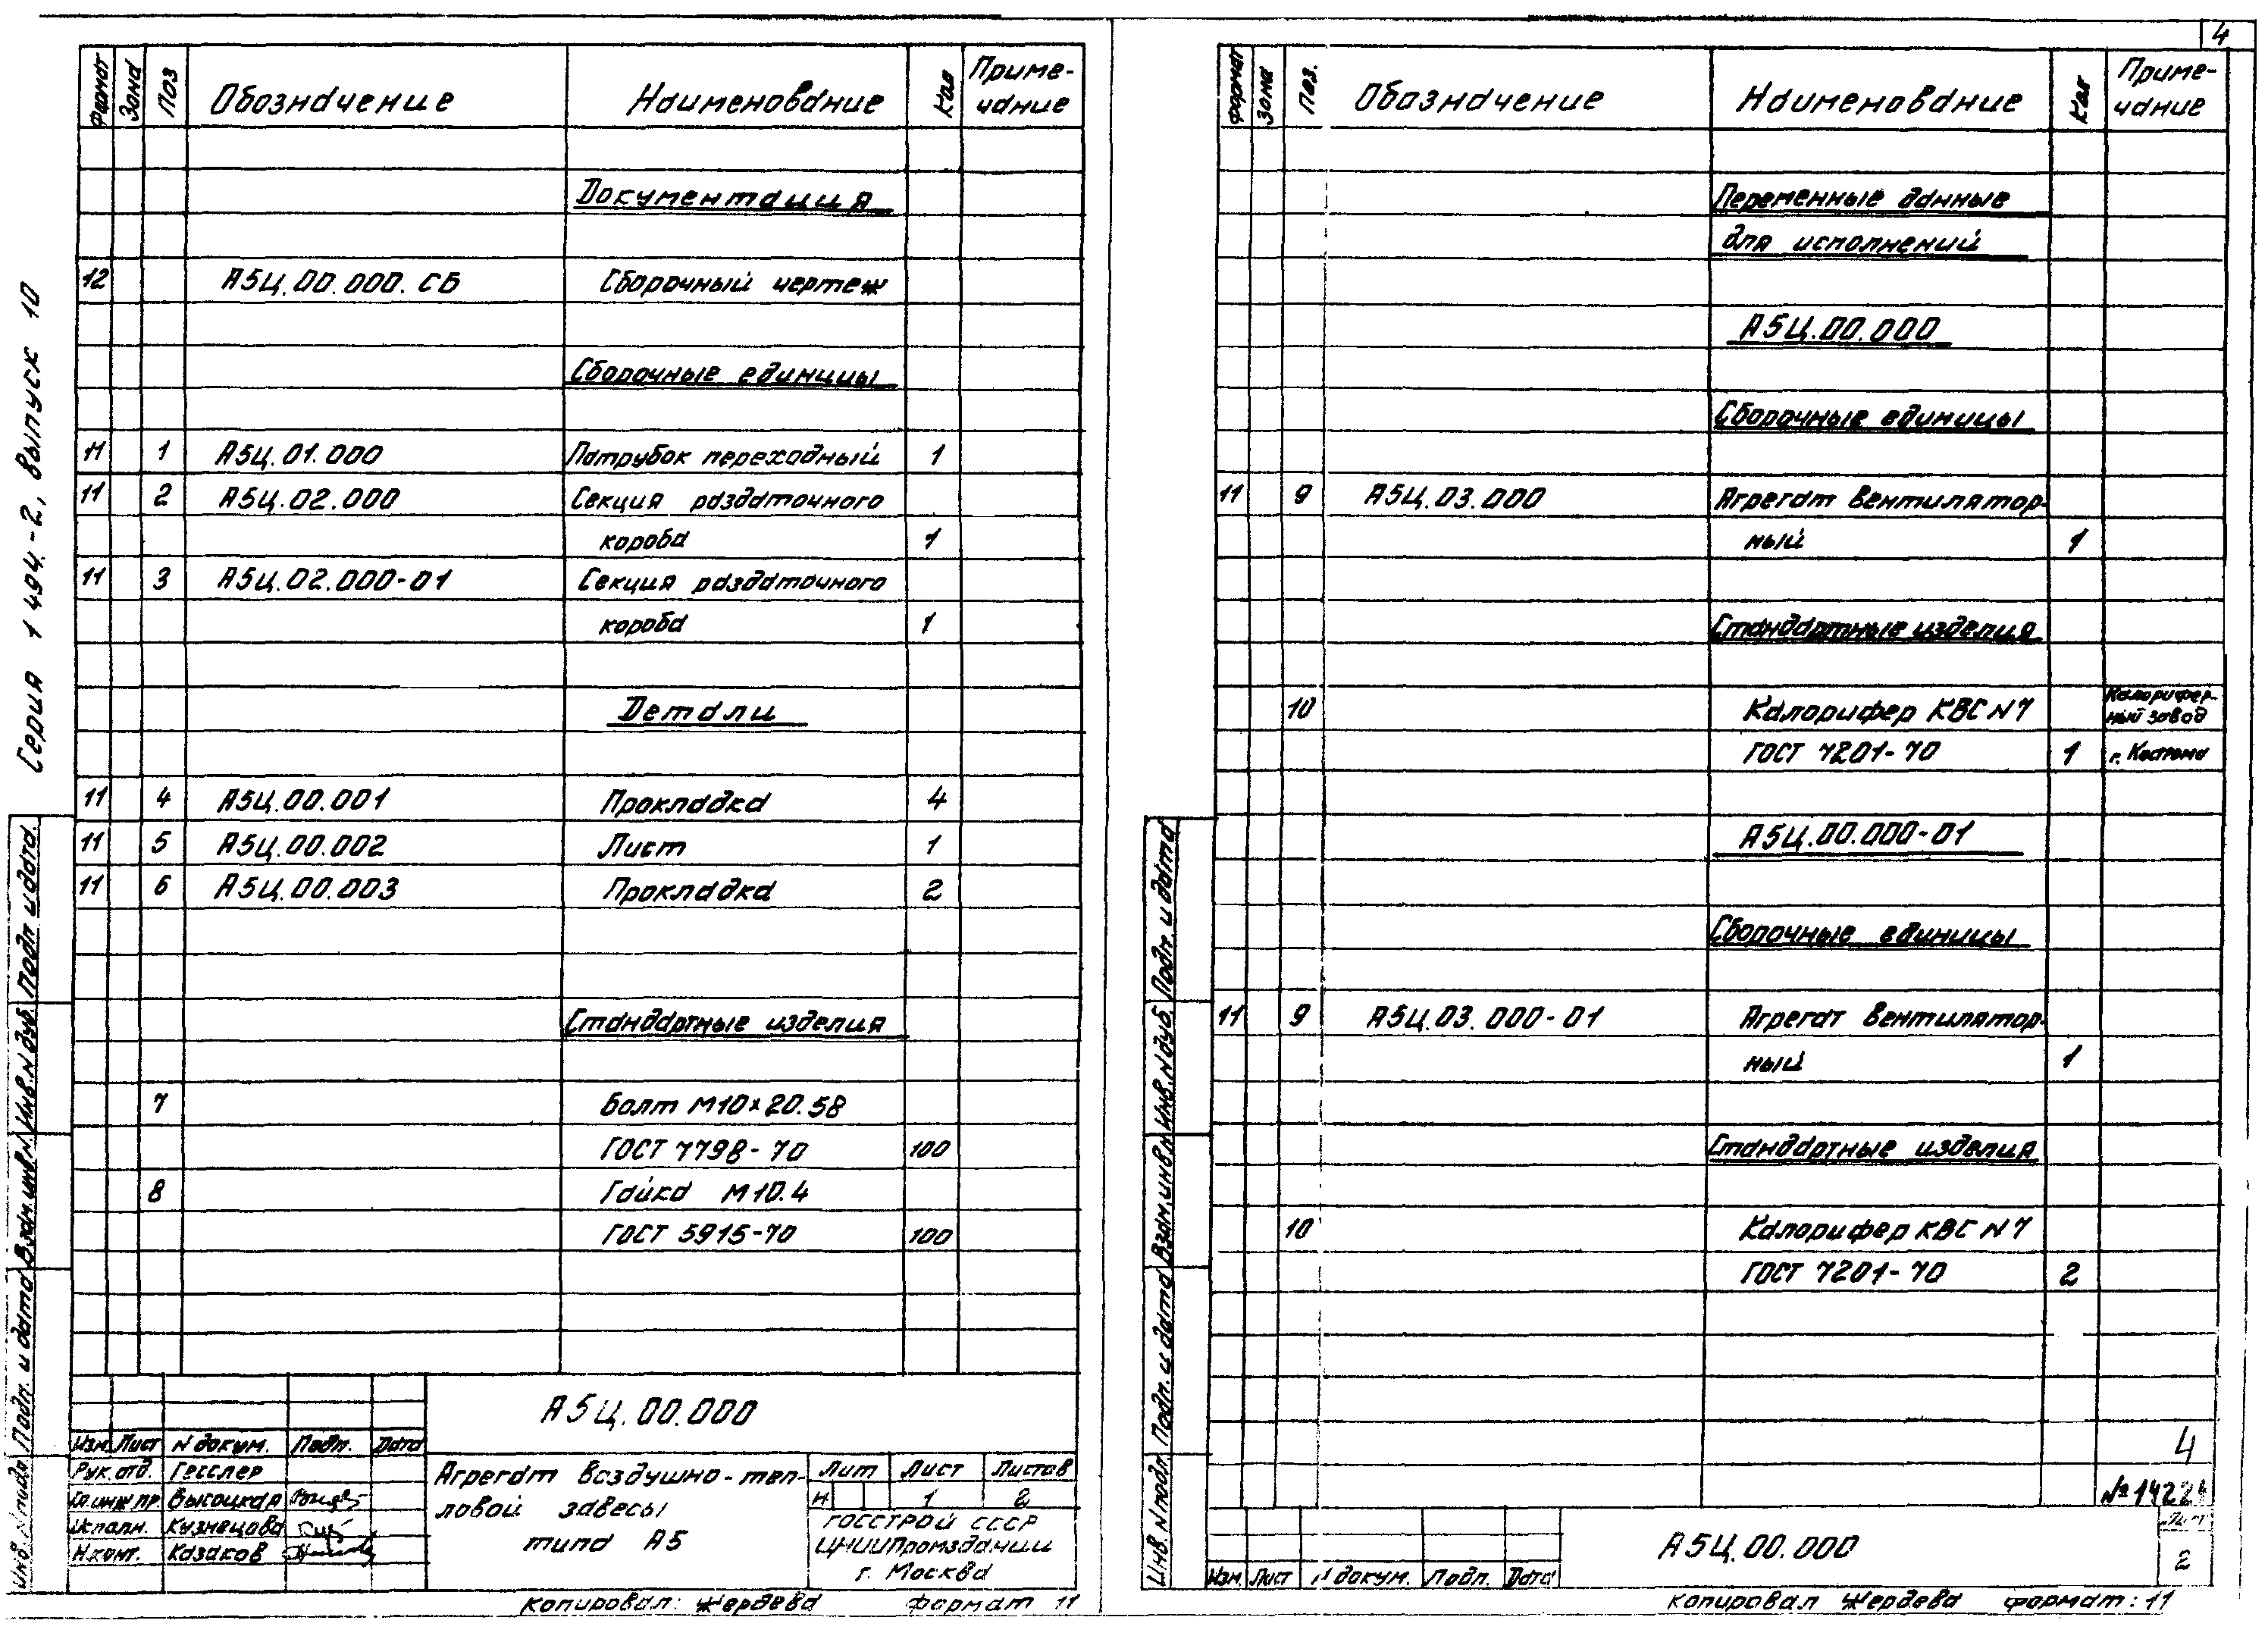 4
Серия 1 494.-2, выпуск 10
Формат Зона Поз Обозначение Наименование Кол Приме-
чание
Документация
12 А5Ц.00.000.СБ Сборочный чертеж
Сборочные единицы
11 1 А5Ц.01.000 Патрубок переходный 1
11 2 А5Ц.02.000 Секция раздаточного
короба 1
11 3 А5Ц.02.000-01 Секция раздаточного
короба 1
Детали
11 4 А5Ц.00.001 Прокладка 4
11 5 А5Ц.00.002 Лист 1
11 6 А5Ц.00.003 Прокладка 2
Стандартные изделия
7 Болт М10х20.58
ГОСТ 7798-70 100
8 Гайка М10.4
ГОСТ 5915-70 100
Инв.N подл Подп. и дата Взам.инв.N. Инв.N дуб. Подп и дата.
А5Ц.00.000
Изм Лист N докум. Подп. Дата
Рук.отд. Гесслер
Гл.инж пр. Высоцкая
Исполн. Кузнецова
Н.конт. Казаков
Агрегат воздушно-теп-
ловой завесы
типа А5
Лит Лист Листов
И 1 2
ГОССТРОЙ СССР
ЦНИИПромзданий
г. Москва
Копировал: Жердева формат 11
Формат Зона Поз. Обозначение Наименование Кол Приме-
чание
Переменные данные
для исполнений
А5Ц.00.000
Сборочные единицы
11 9 А5Ц.03.000 Агрегат вентилятор-
ный 1
Стандартные изделия
10 Калорифер КВС N7 Калорифер-
ный завод
ГОСТ 7201-70 1 г. Кострома
А5Ц.00.000-01
Сборочные единицы
11 9 А5Ц.03.000-01 Агрегат вентилятор-
ный 1
Стандартные изделия
10 Калорифер КВС N7
ГОСТ 7201-70 2
4
Инв.N подл Подп. и дата Взам.инв.N Инв.N дуб. Подп. и дата
А5Ц.00.000
Лист
2
Изм. Лист N докум. Подп. Дата
Копировал Жердева формат: 11